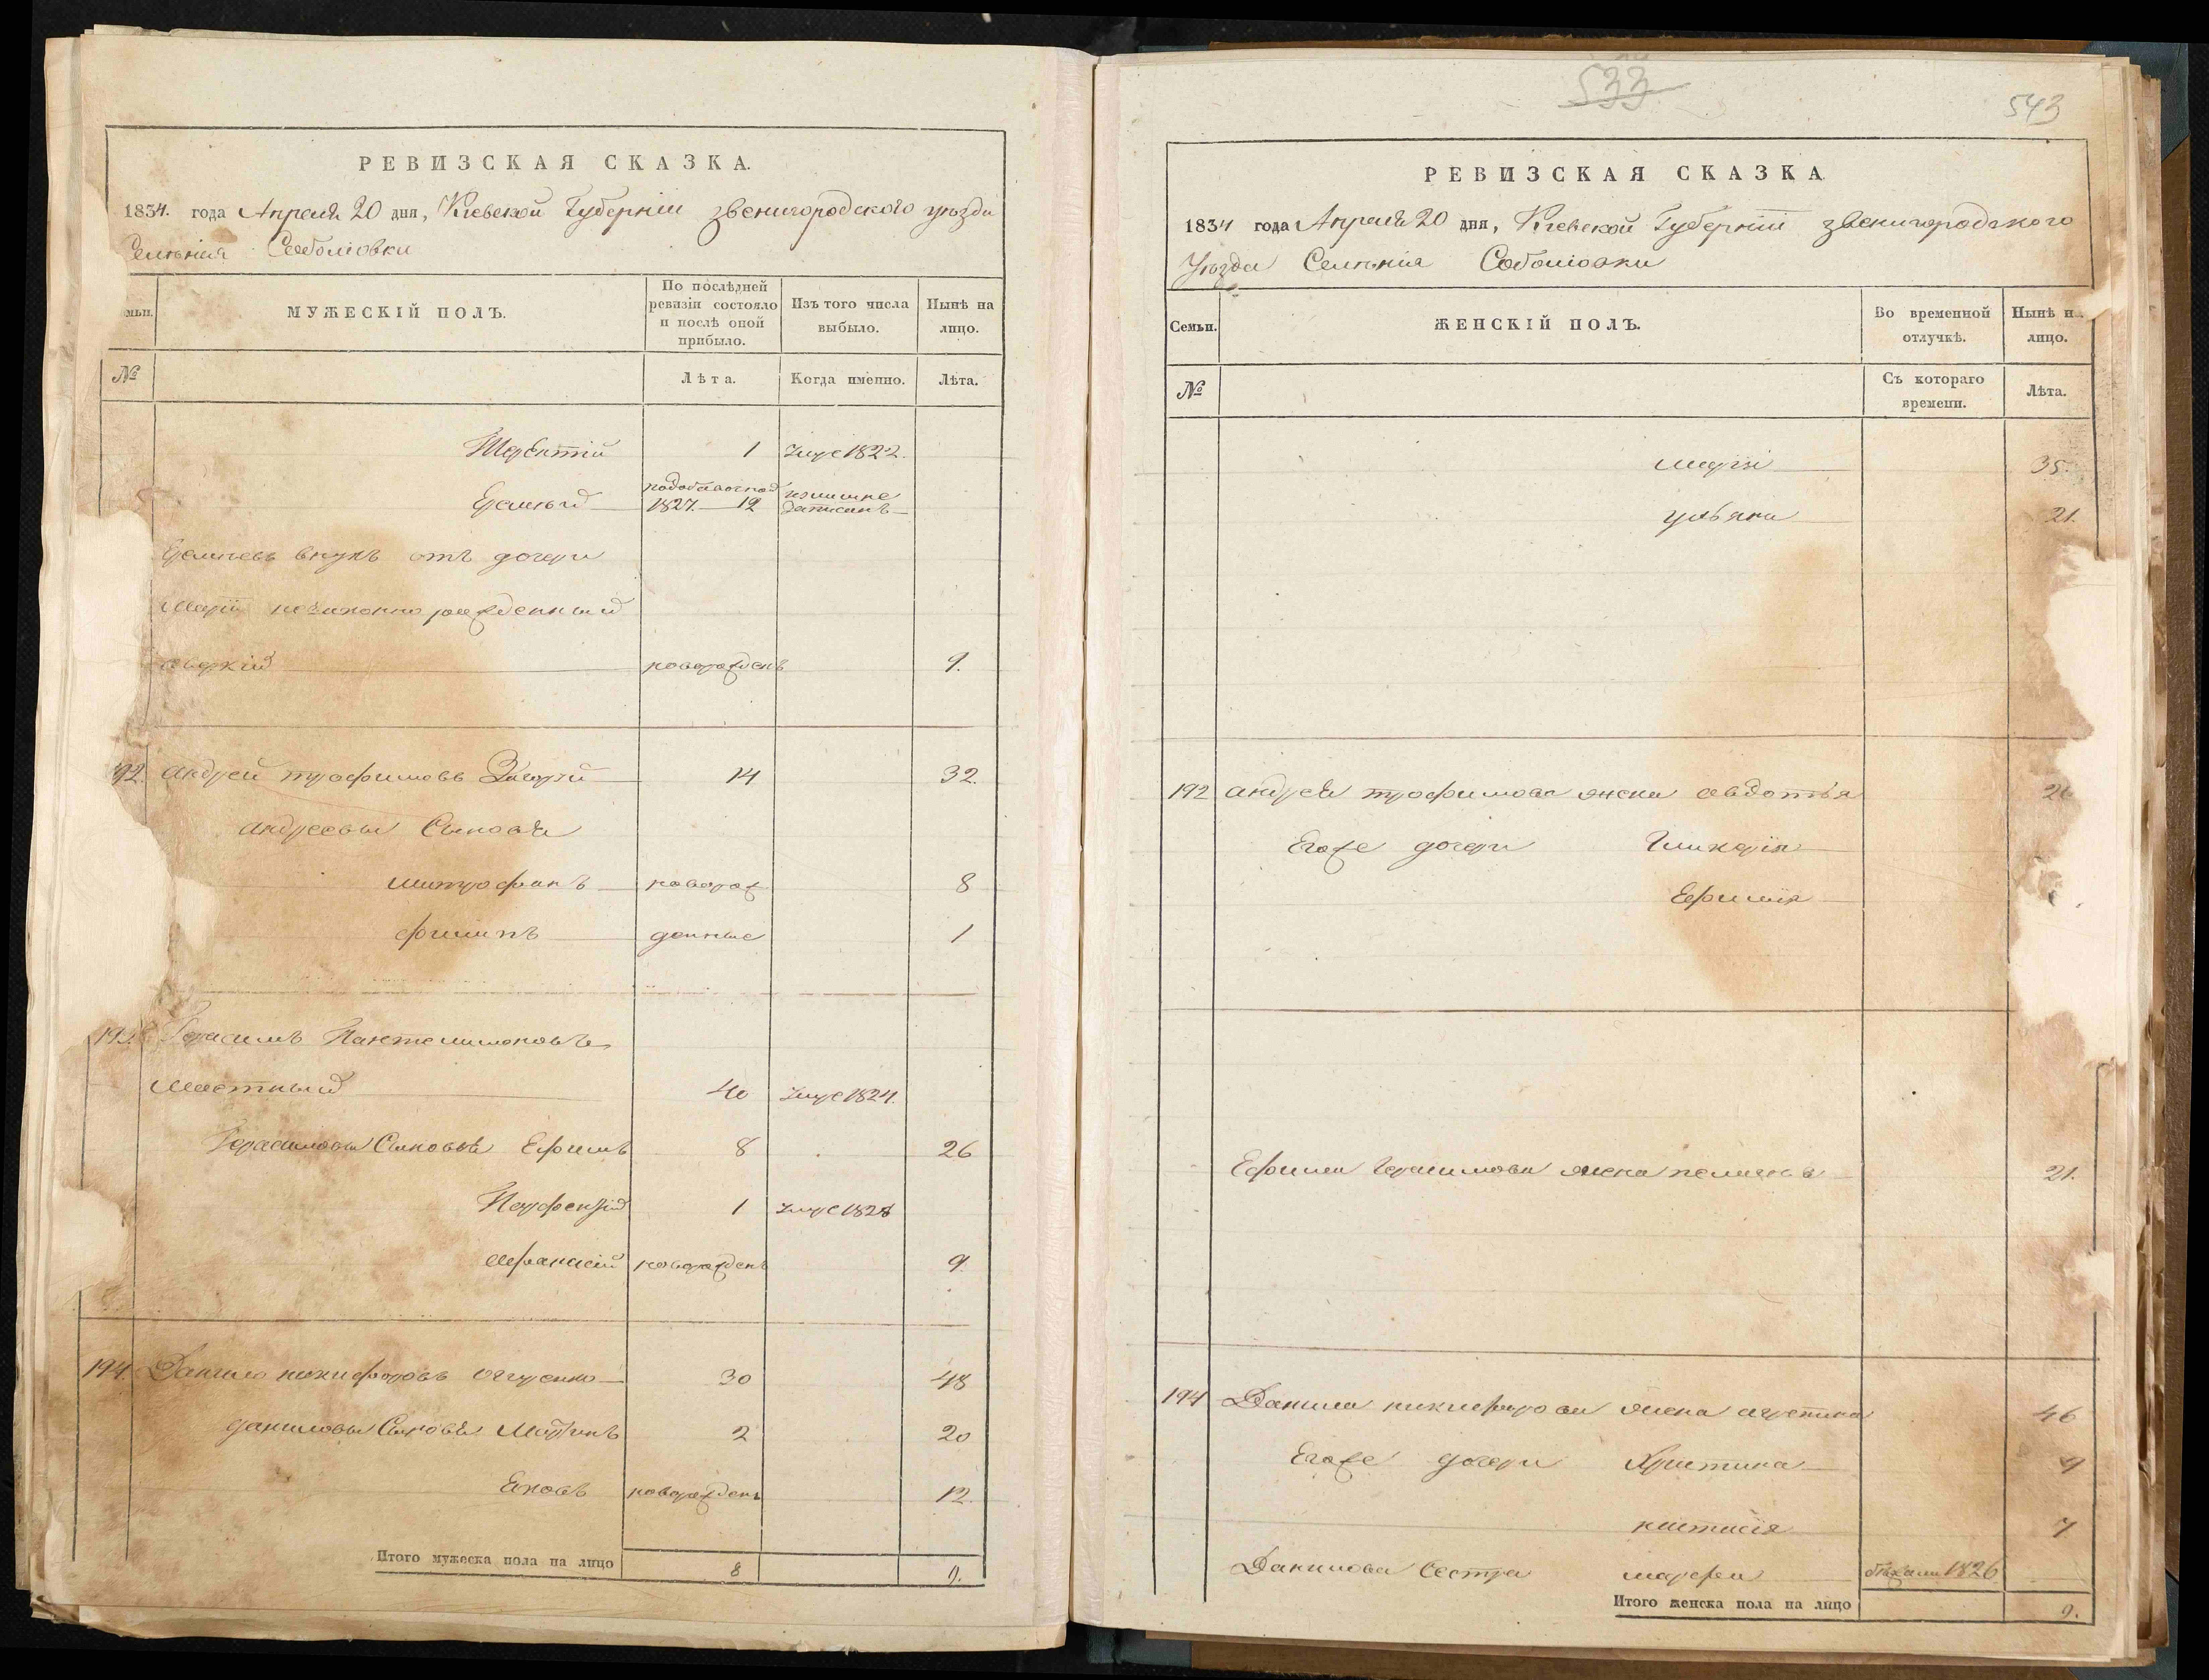 РЕВИЗСКАЯ СКАЗКА.
1834. года Апреля 20 дня, Киевской Губернии звенигородского уезда
Селения Соболювки
мьи.
МУЖЕСКІЙ ПОЛЪ.
По послѣдней ревизіи состояло и послѣ оной прибыло.
Изъ того числа выбыло.
Нынѣ на лицо.
№
Лѣта.
Когда именно.
Лѣта.
Терентій 1 умре 1822.
1827. 12 излишне записанъ
внукъ отъ дочери
Маріи незаконно рожденный
Аверкій новорожденъ 9.
92. андрей трофимовъ 14 32.
андреевы Сыновья
митрофанъ новорож 8
филипъ денные 1
193 Герасимъ Пантелимоновъ
40 умре 1824.
Герасимовы Сыновья Ефимъ 8 26
Парфентій 1 умре 1828
Афанасій новорожденъ 9
194 Данило никифоровъ 30 48
даниловы Сыновья Мартинъ 2 20
Яковъ новорожденъ 12.
Итого мужеска пола на лицо 8 9.
533
543
РЕВИЗСКАЯ СКАЗКА
1834 года Апреля 20 дня, Киевской Губерніи звенигородского
Уезда Селенія Соболювки
Семьи.
ЖЕНСКІЙ ПОЛЪ.
Во временной отлучкѣ.
Нынѣ н
лицо.
№
Съ котораго времени.
Лѣта.
марія 35.
ульяна 21.
192 андрея трофимова жена авдотья 2
Егоже дочери Гликерія
Ефимія
Ефима Герасимова жена пелагея 21.
194 Данила никифорова жена агрепина 46
Егоже дочери Христина 9
настасія 7
Данилова Сестра марфа бежала 1826
Итого женска пола на лицо 9.